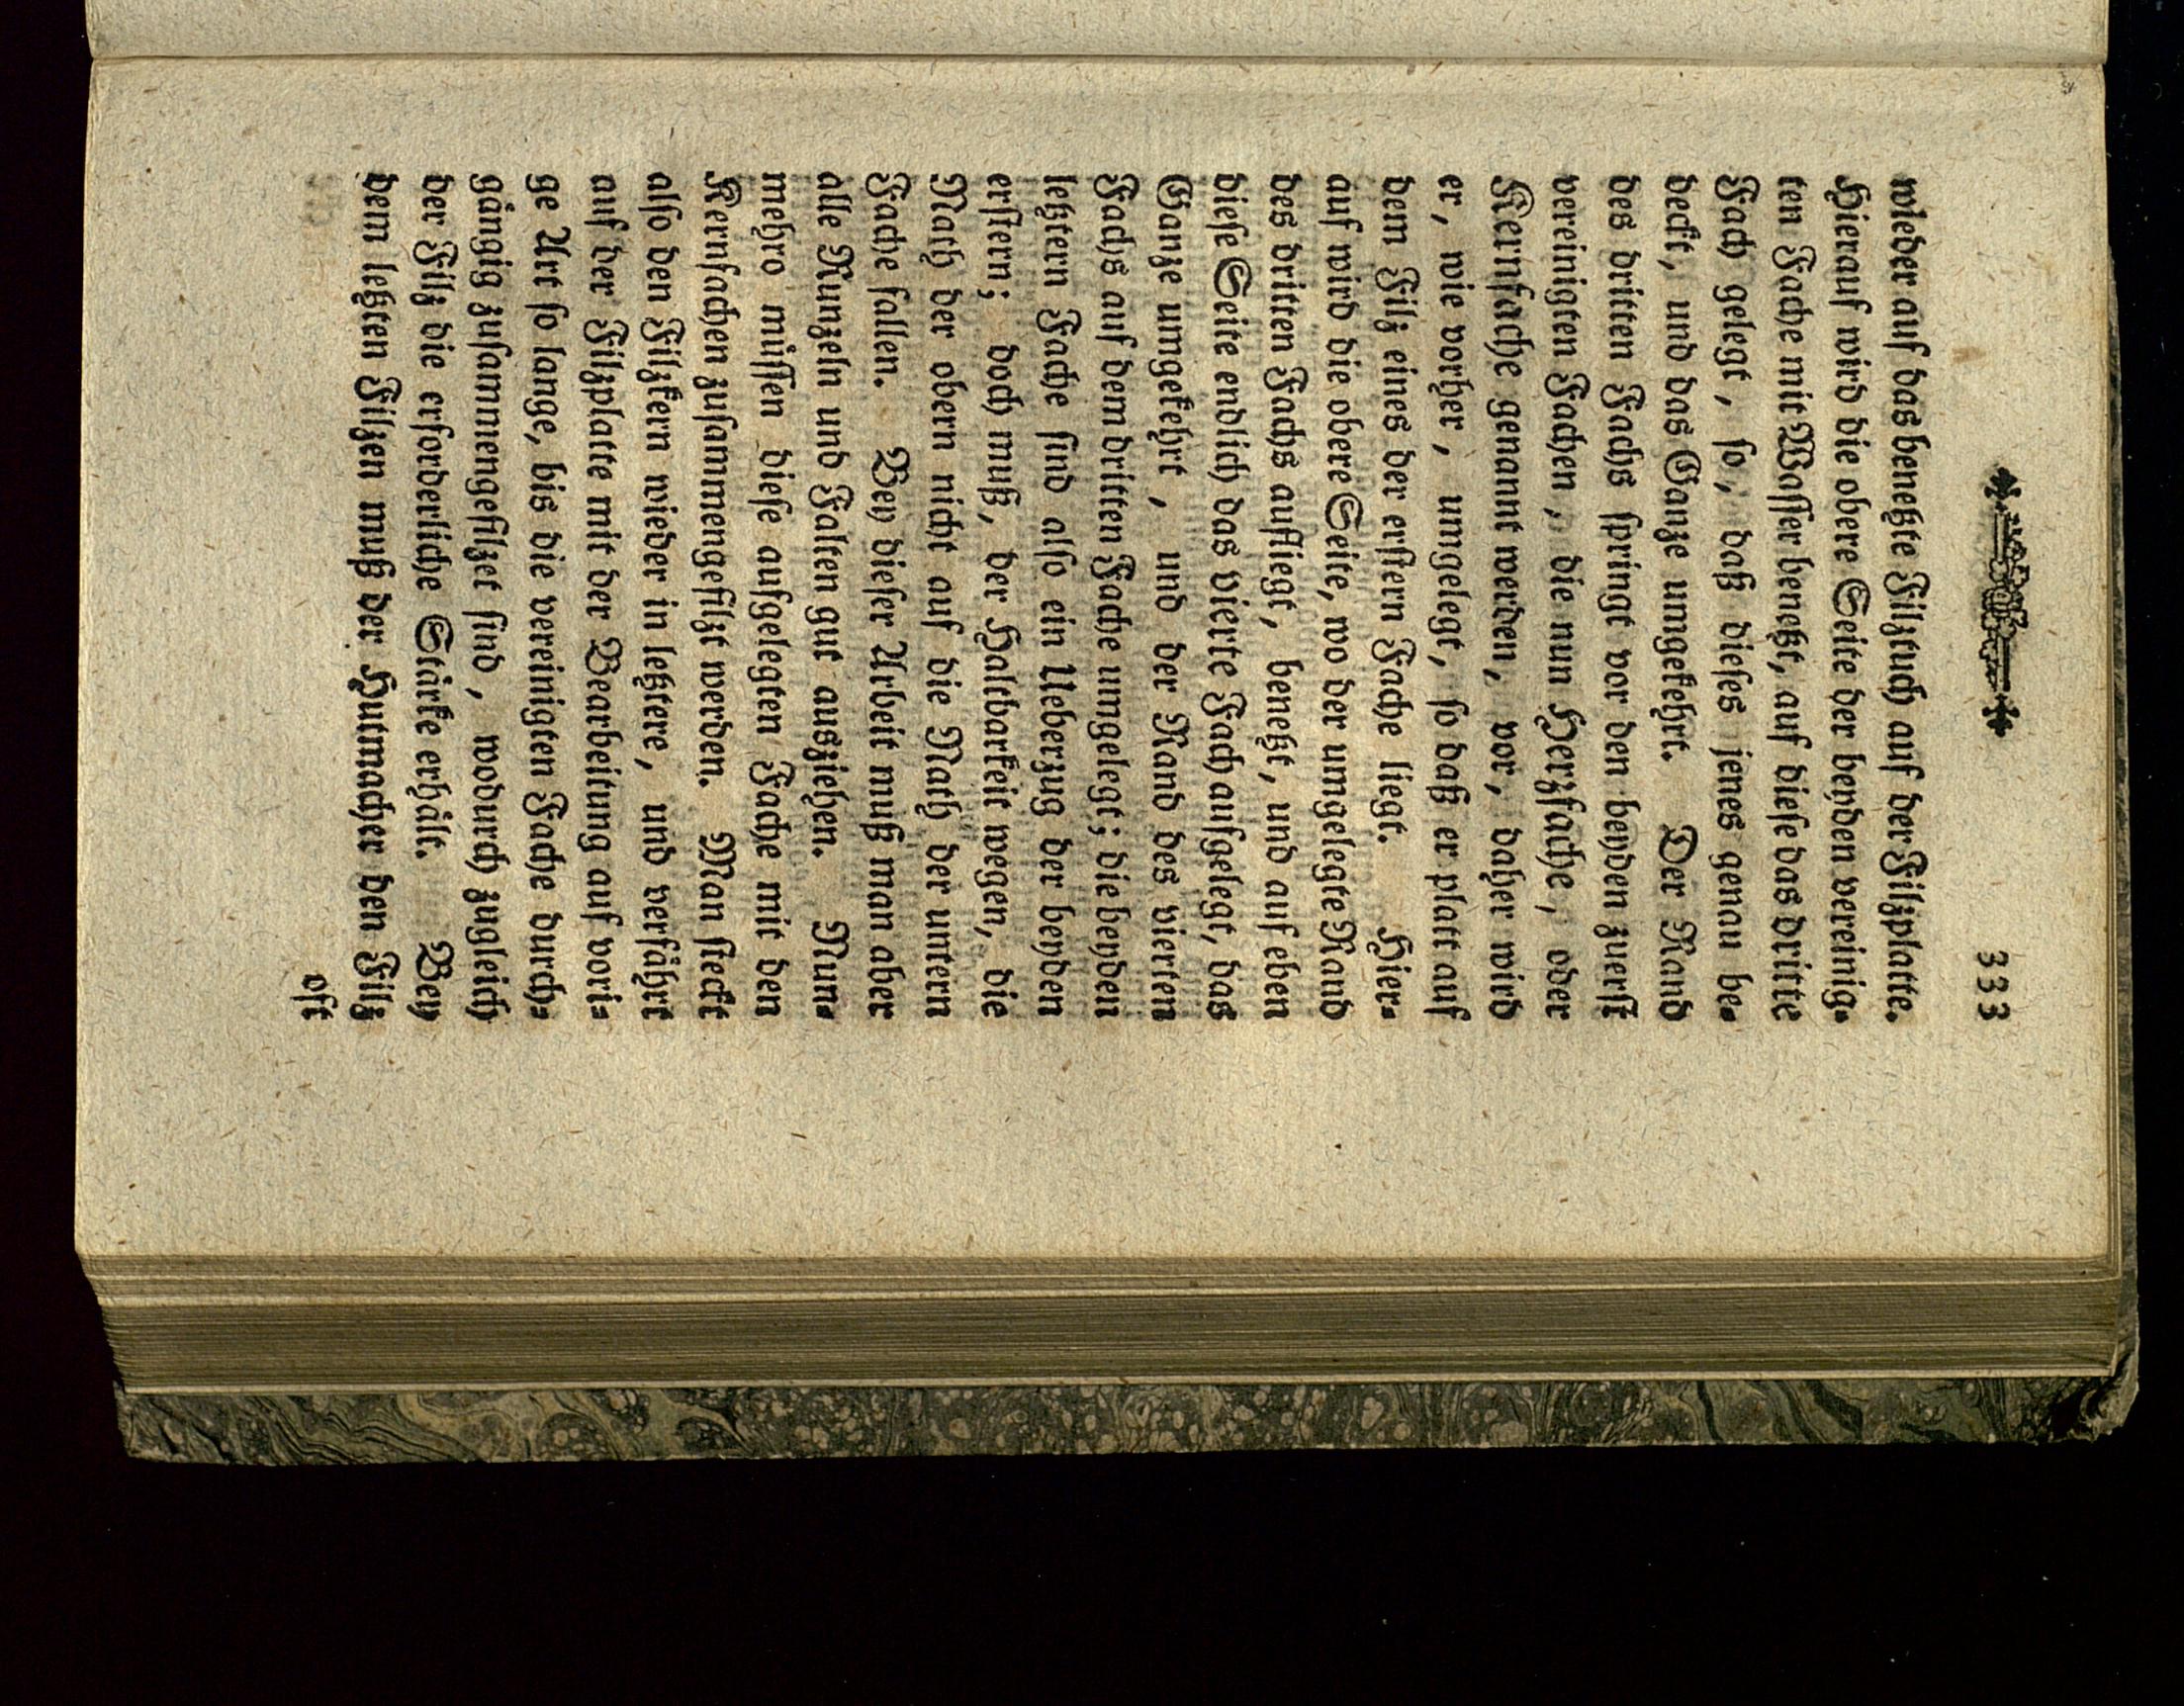 333
wieder auf das benetzte Filztuch auf der Filzplatte.
Hierauf wird die obere Seite der beyden vereinig-
ten Fache mit Wasser benetzt, auf diese das dritte
Fach gelegt, so, daß dieses jenes genau be-
deckt, und das Ganze umgekehrt. Der Rand
des dritten Fachs springt vor den beyden zuerst
vereinigten Fachen, die nun Herzfache, oder
Kernfache genannt werden, vor, daher wird
er, wie vorher, umgelegt, so daß er platt auf
dem Filz eines der erstern Fache liegt. Hier-
auf wird die obere Seite, wo der umgelegte Rand
des dritten Fachs aufliegt, benetzt, und auf eben
diese Seite endlich das vierte Fach aufgelegt, das
Ganze umgekehrt, und der Rand des vierten
Fachs auf dem dritten Fache umgelegt; die beyden
letztern Fache sind also ein Ueberzug der beyden
erstern; doch muß, der Haltbarkeit wegen, die
Nath der obern nicht auf die Nath der untern
Fache fallen. Bey dieser Arbeit muß man aber
alle Runzeln und Falten gut ausziehen. Nun-
mehro müssen diese aufgelegten Fache mit den
Kernfachen zusammengefilzt werden. Man steckt
also den Filzkern wieder in letztere, und verfährt
auf der Filzplatte mit der Bearbeitung auf vori-
ge Art so lange, bis die vereinigten Fache durch-
gängig zusammengefilzet sind, wodurch zugleich
der Filz die erforderliche Stärke erhält. Bey
dem letzten Filzen muß der Hutmacher den Filz
oft